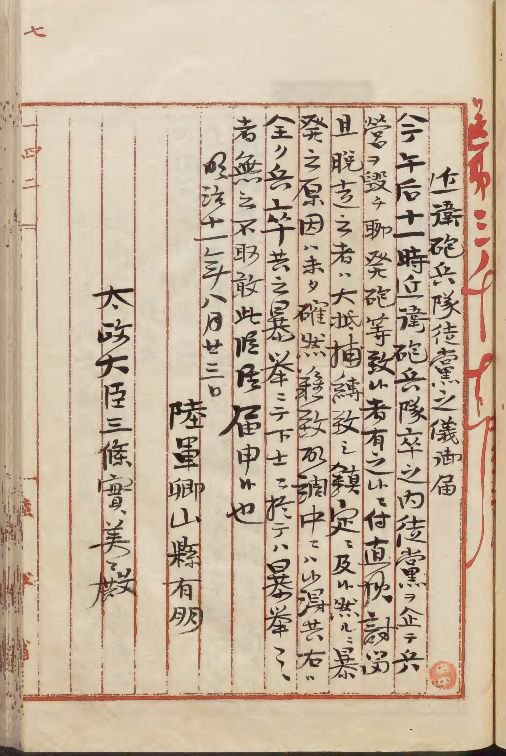 近衛砲兵隊徒黨之儀御届
今午后十一時近衛砲兵隊卒之内徒黨ヲ企テ兵
営ヲ毀チ聊発砲等致候者有之候ニ付直
且脱走之者ハ大抵捕縛致シ鎮定ニ及候然ルニ暴
発之原因ハ未タ確然難致取調中ニハ候得共右ハ
全ク兵卒共之暴挙ニテ下士ニ於テハ暴挙之
者無之不取敢此段御届申候也
明治十一年八月廿三日
陸軍卿山縣有朋
太政大臣三條實美殿